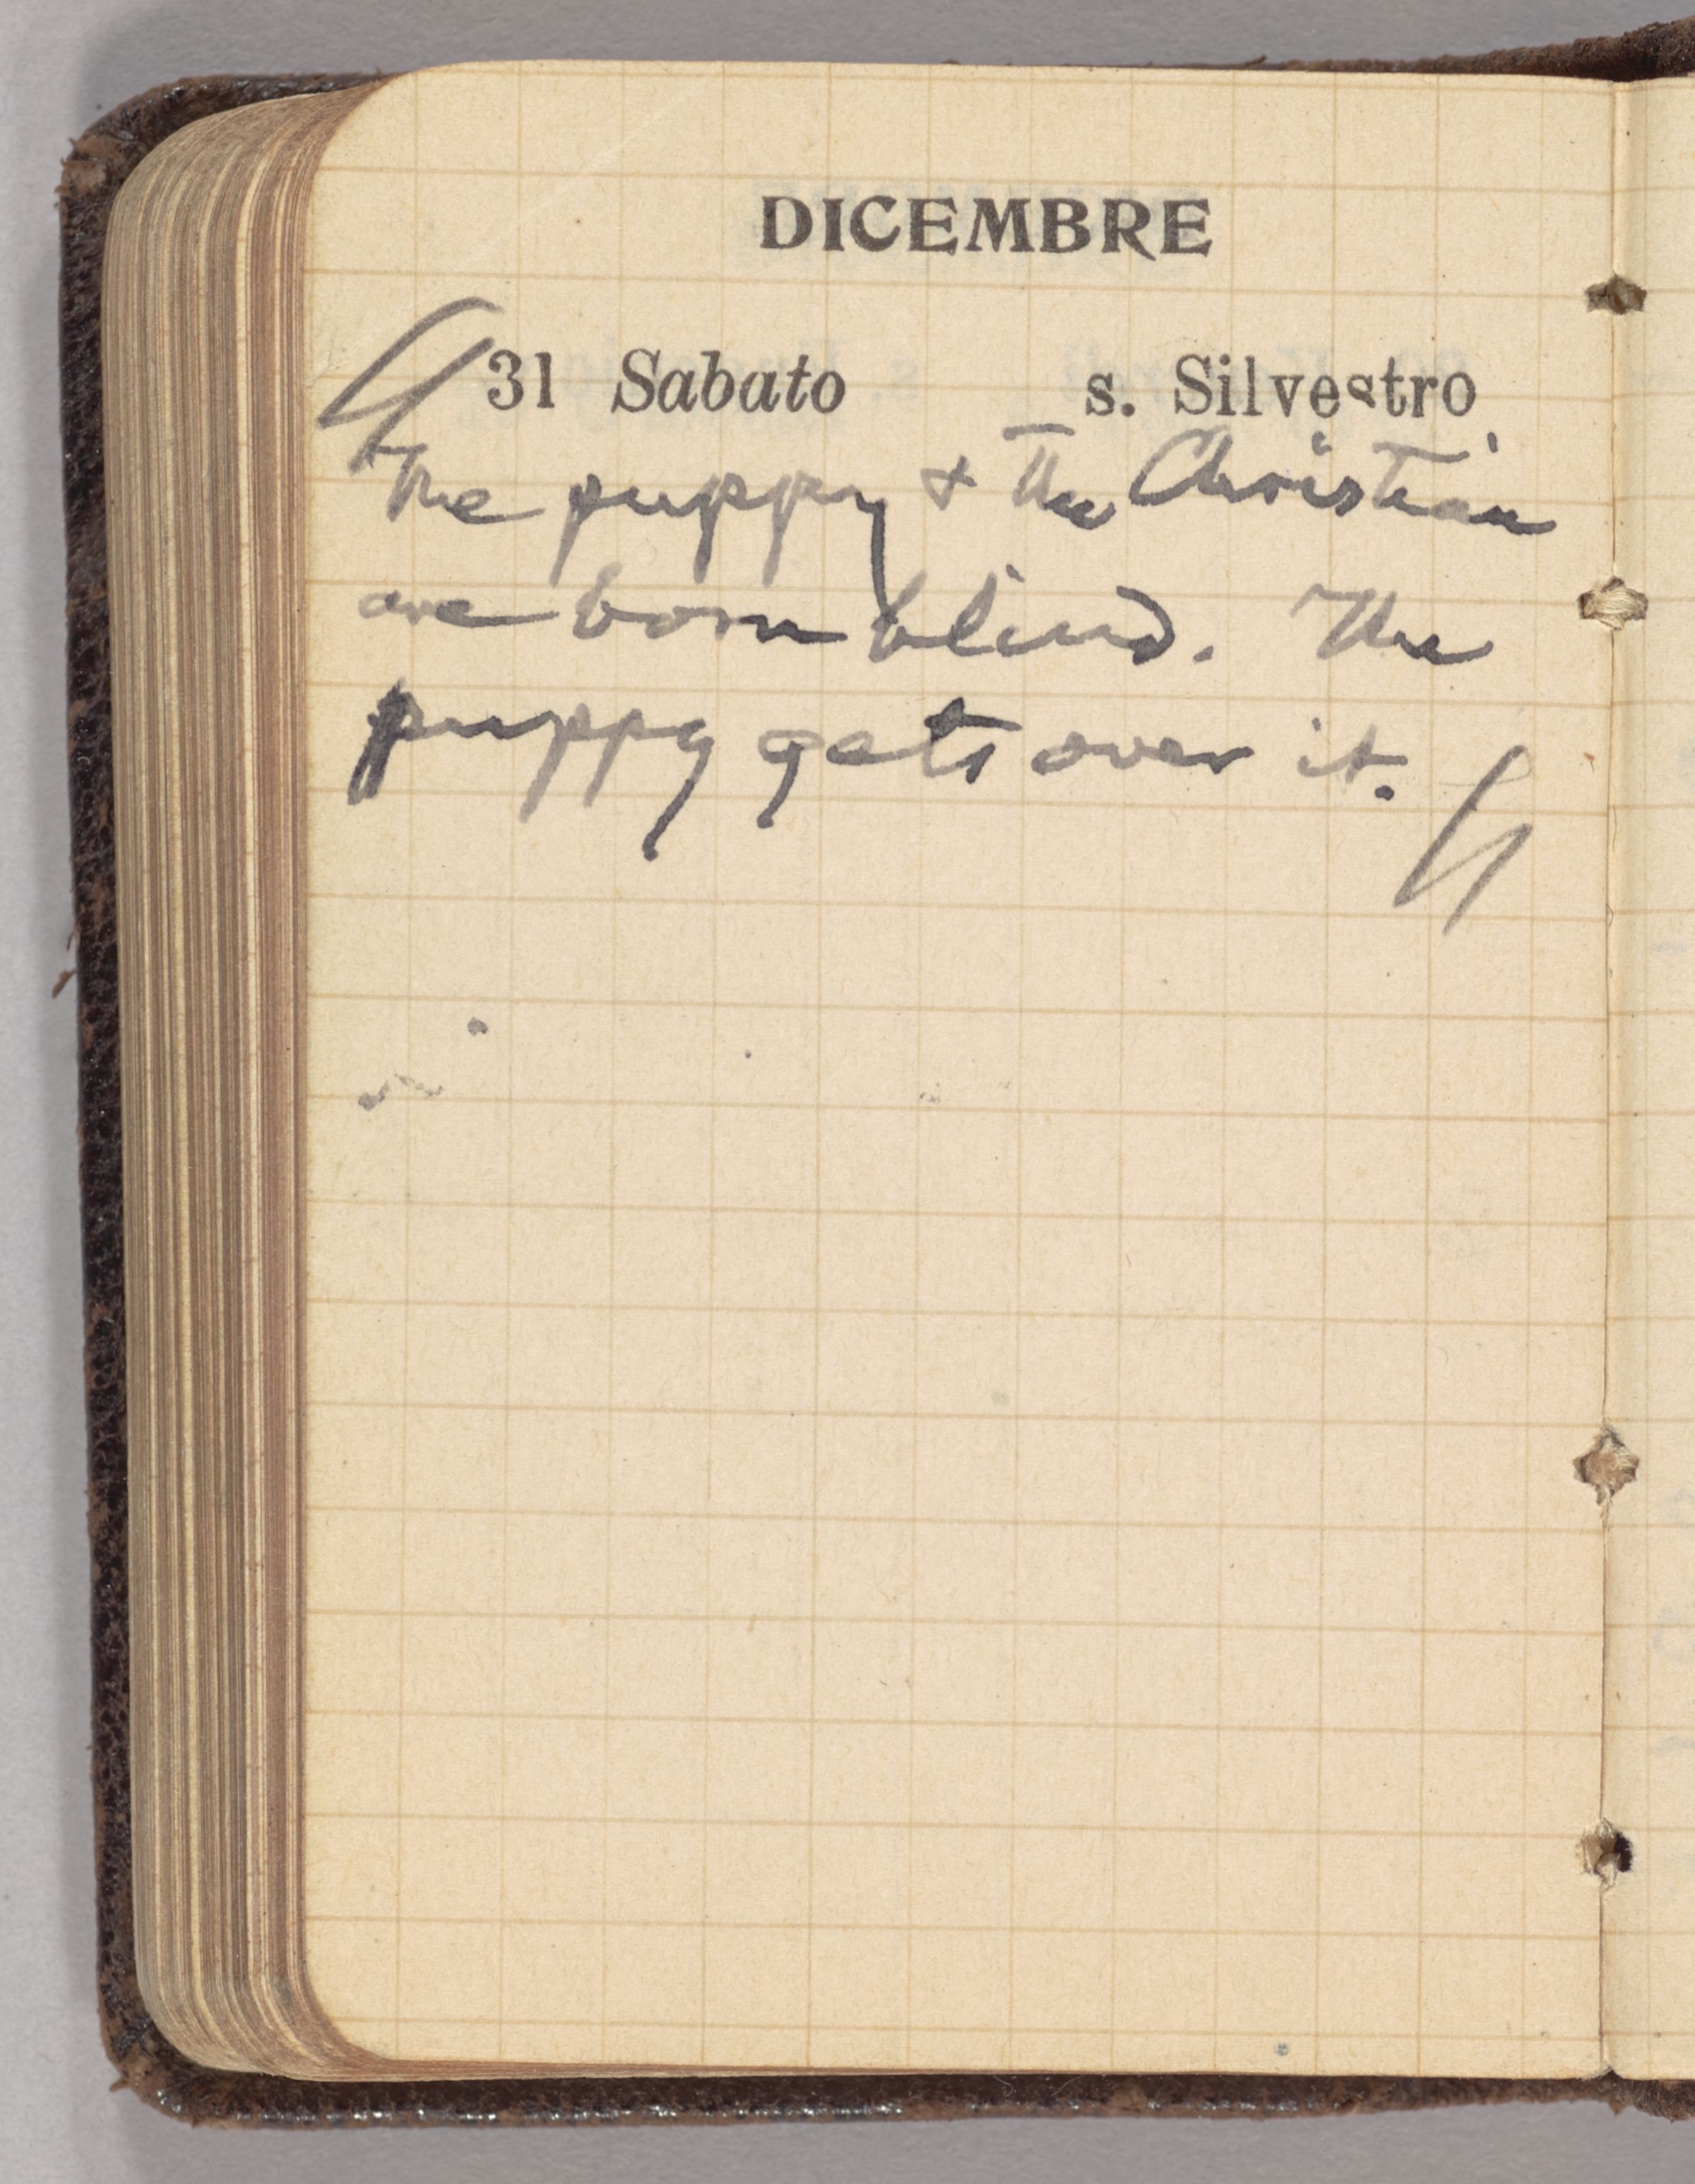 DICEMBRE
31 Sabato s. Silvestro
The puppy & the Christian
are born blind. The
puppy gets over it.